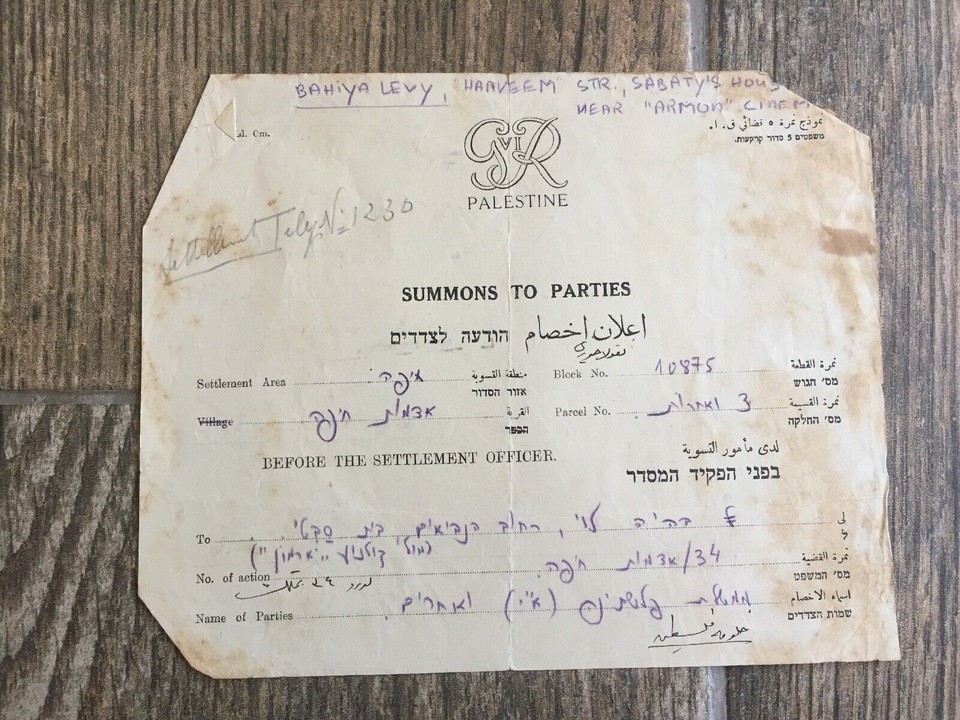 BAHIYA LEVY, "HANVEEM" STR., SABATY'S HOUS
NEAR "ARMON" CINEM
نموذج نمرة ٥ قضائي ق. ا.
משפטים 5 סדור קרקעות.
Cm.
GVIR
PALESTINE
Settlement No 1230
SUMMONS TO PARTIES
اعلان اخصام הודעה לצדדים
Settlement Area חיפה منطقة التسوية
אזור הסדור
Block No. 10875 نمرة القطعة
מס' הגוש
Village אדמות חיפה القرية
הכפר
Parcel No. 3 ואחרות نمرة القسيمة
מס' החלקה
BEFORE THE SETTLEMENT OFFICER.
لدى مأمور التسوية
בפני הפקיד המסדר
To בהיה לוי, רחוב הנביאים, בית סבטי لى
ל
(מול קולנוע "ארמון")
No. of action 34/אדמות חיפה نمرة القضية
מס' המשפט
Name of Parties ממשלת פלשתינה (א"י) ואחרים اسماء الاخصام
שמות הצדדים
حكومة فلسطين